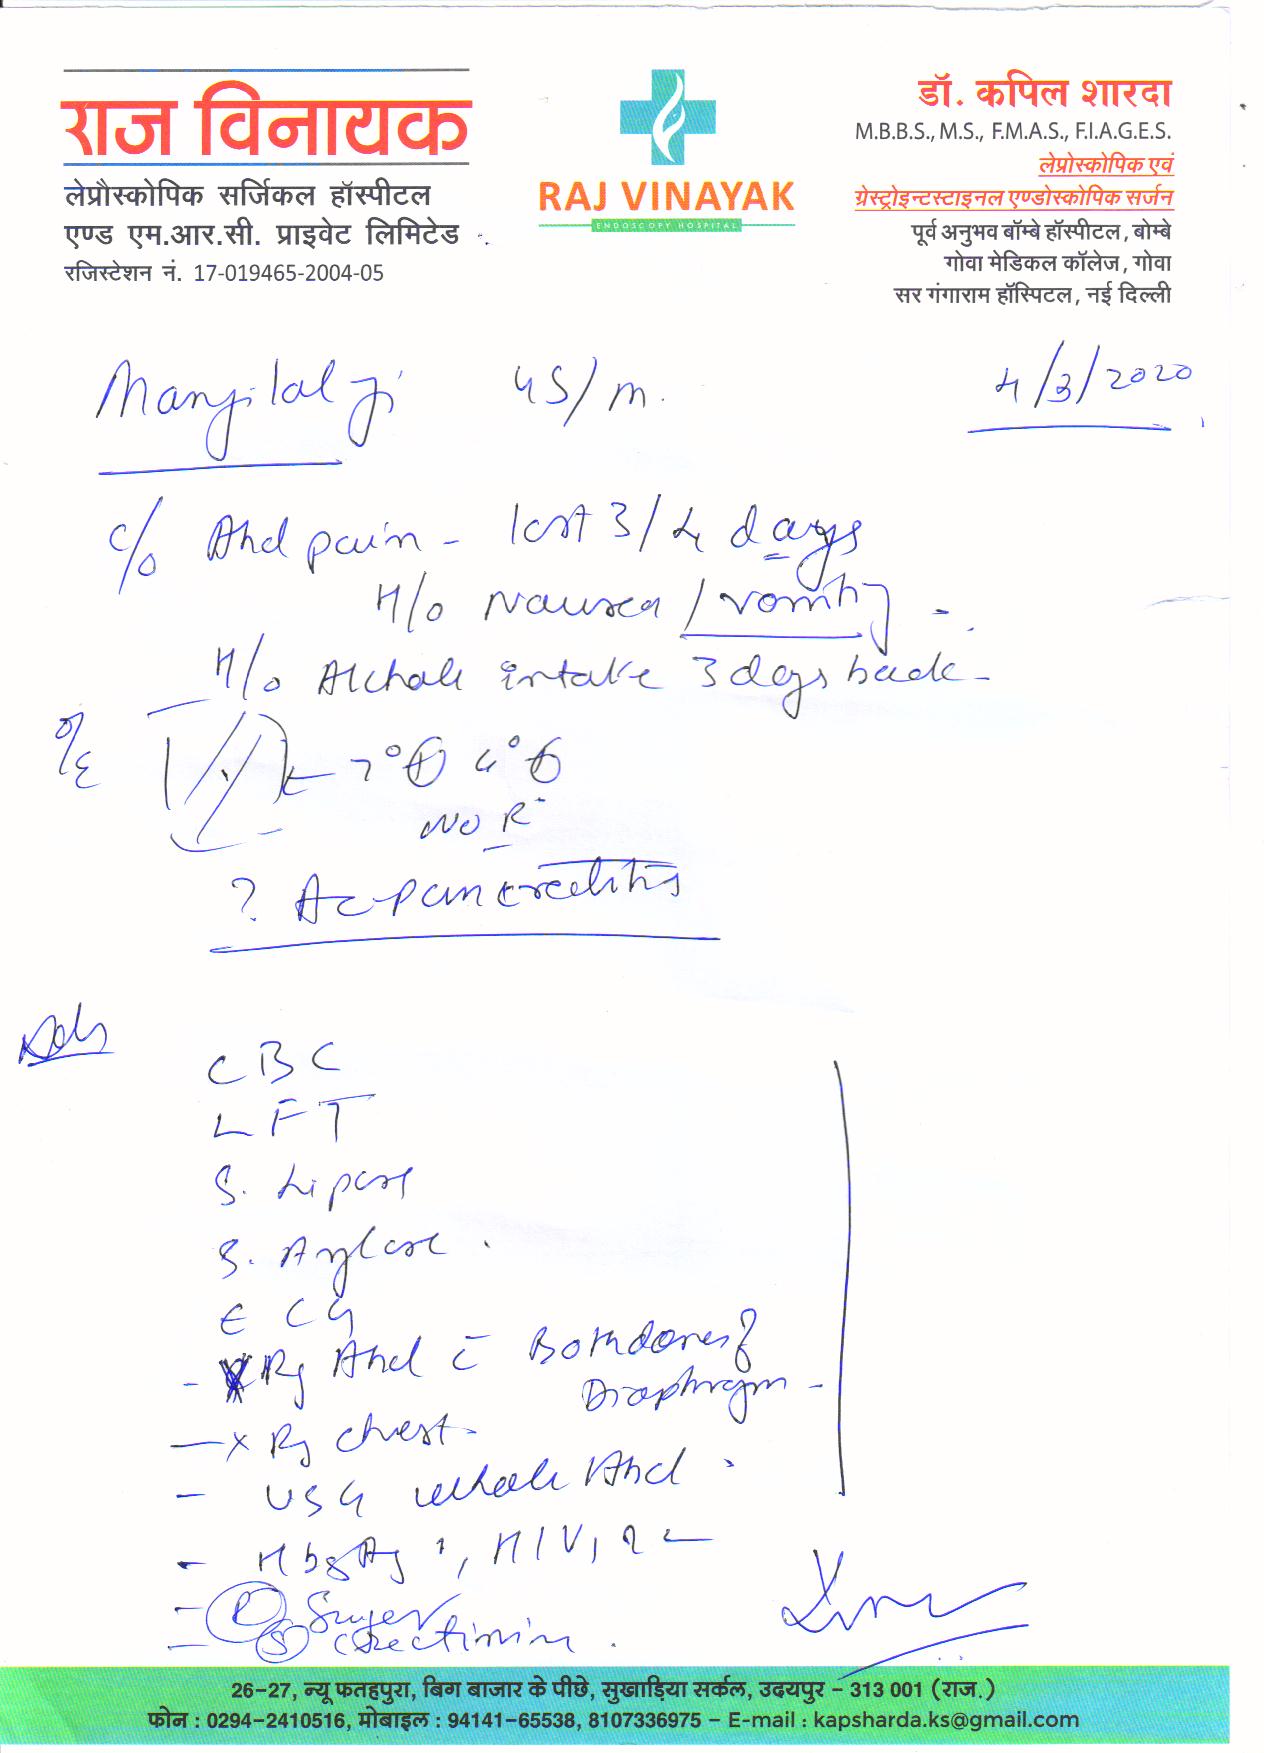 राज विनायक
लेप्रौस्कोपिक सर्जिकल हॉस्पीटल
एण्ड एम.आर.सी. प्राइवेट लिमिटेड
रजिस्टेशन नं. 17-019465-2004-05
RAJ VINAYAK
ENDOSCOPY HOSPITAL
डॉ. कपिल शारदा
M.B.B.S., M.S., F.M.A.S., F.I.A.G.E.S.
लेप्रोस्कोपिक एवं
ग्रेस्ट्रोइन्टस्टाइनल एण्डोस्कोपिक सर्जन
पूर्व अनुभव बॉम्बे हॉस्पीटल, बोम्बे
गोवा मेडिकल कॉलेज, गोवा
सर गंगाराम हॉस्पिटल, नई दिल्ली
Mangilal ji 45/m. 4/3/2020
c/o Abd pain - last 3/4 days
H/o Nausea / vomiting -
H/o Alchole intake 3 days back -
O/E
NO R
? Ac pancreatitis
Adv
CBC
LFT
S. Lipase
S. Amylase
ECG
- X Ray Abd c̄ Both domes of
Diaphragm -
- X Ray chest -
- USG whole Abd
- HbsAg, HIV,
- R Sugar
- S creatinine
26-27, न्यू फतहपुरा, बिग बाजार के पीछे, सुखाड़िया सर्कल, उदयपुर - 313 001 (राज.)
फोन : 0294-2410516, मोबाइल : 94141-65538, 8107336975 - E-mail : kapsharda.ks@gmail.com